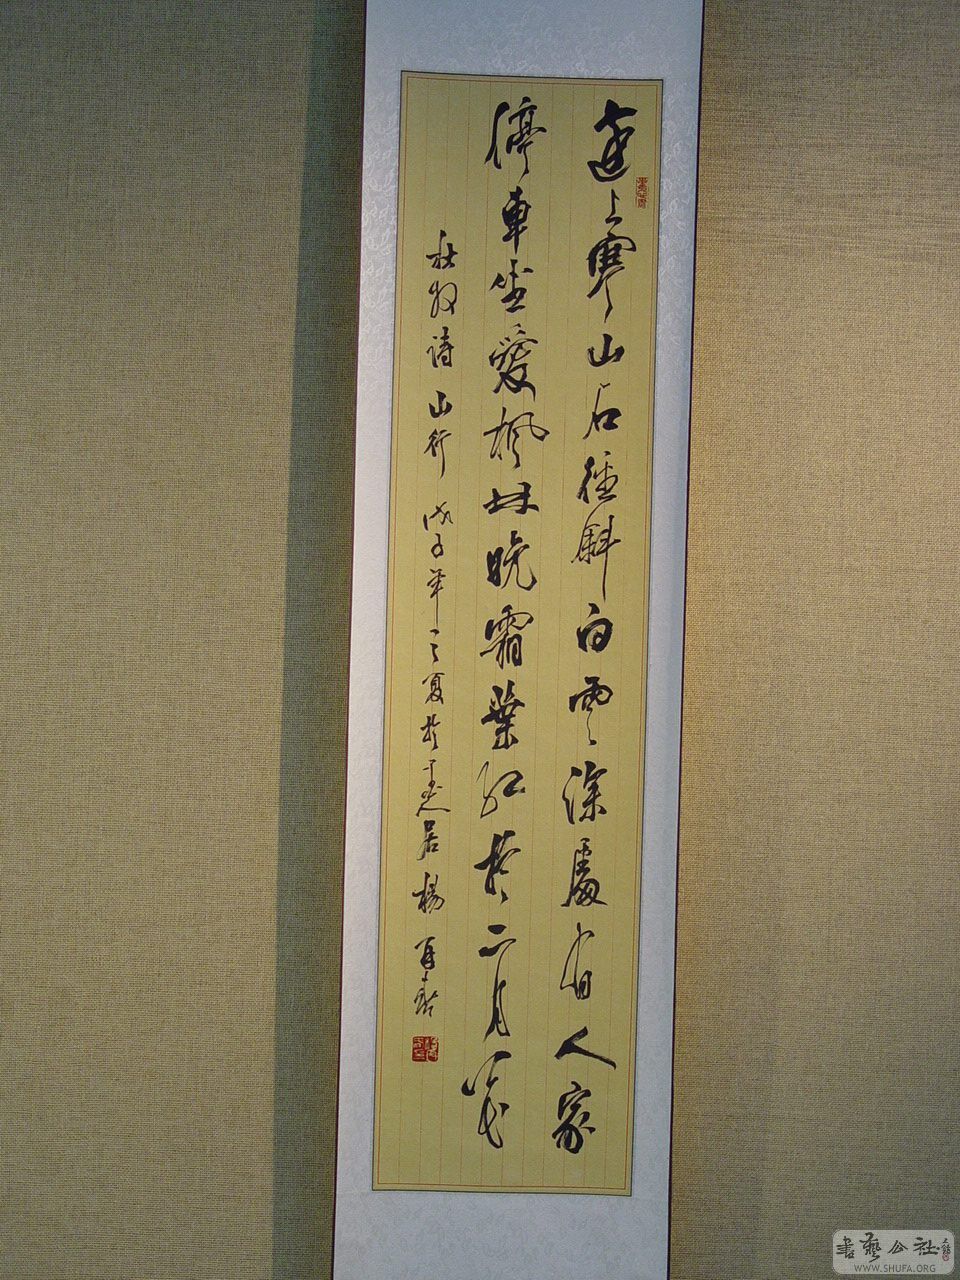 远上寒山石径斜白云深處有人家
停車坐愛楓林晚霜葉紅於二月花
杜牧诗山行戊子年之夏於 居楊
書藝公社
WWW.SHUFA.ORG